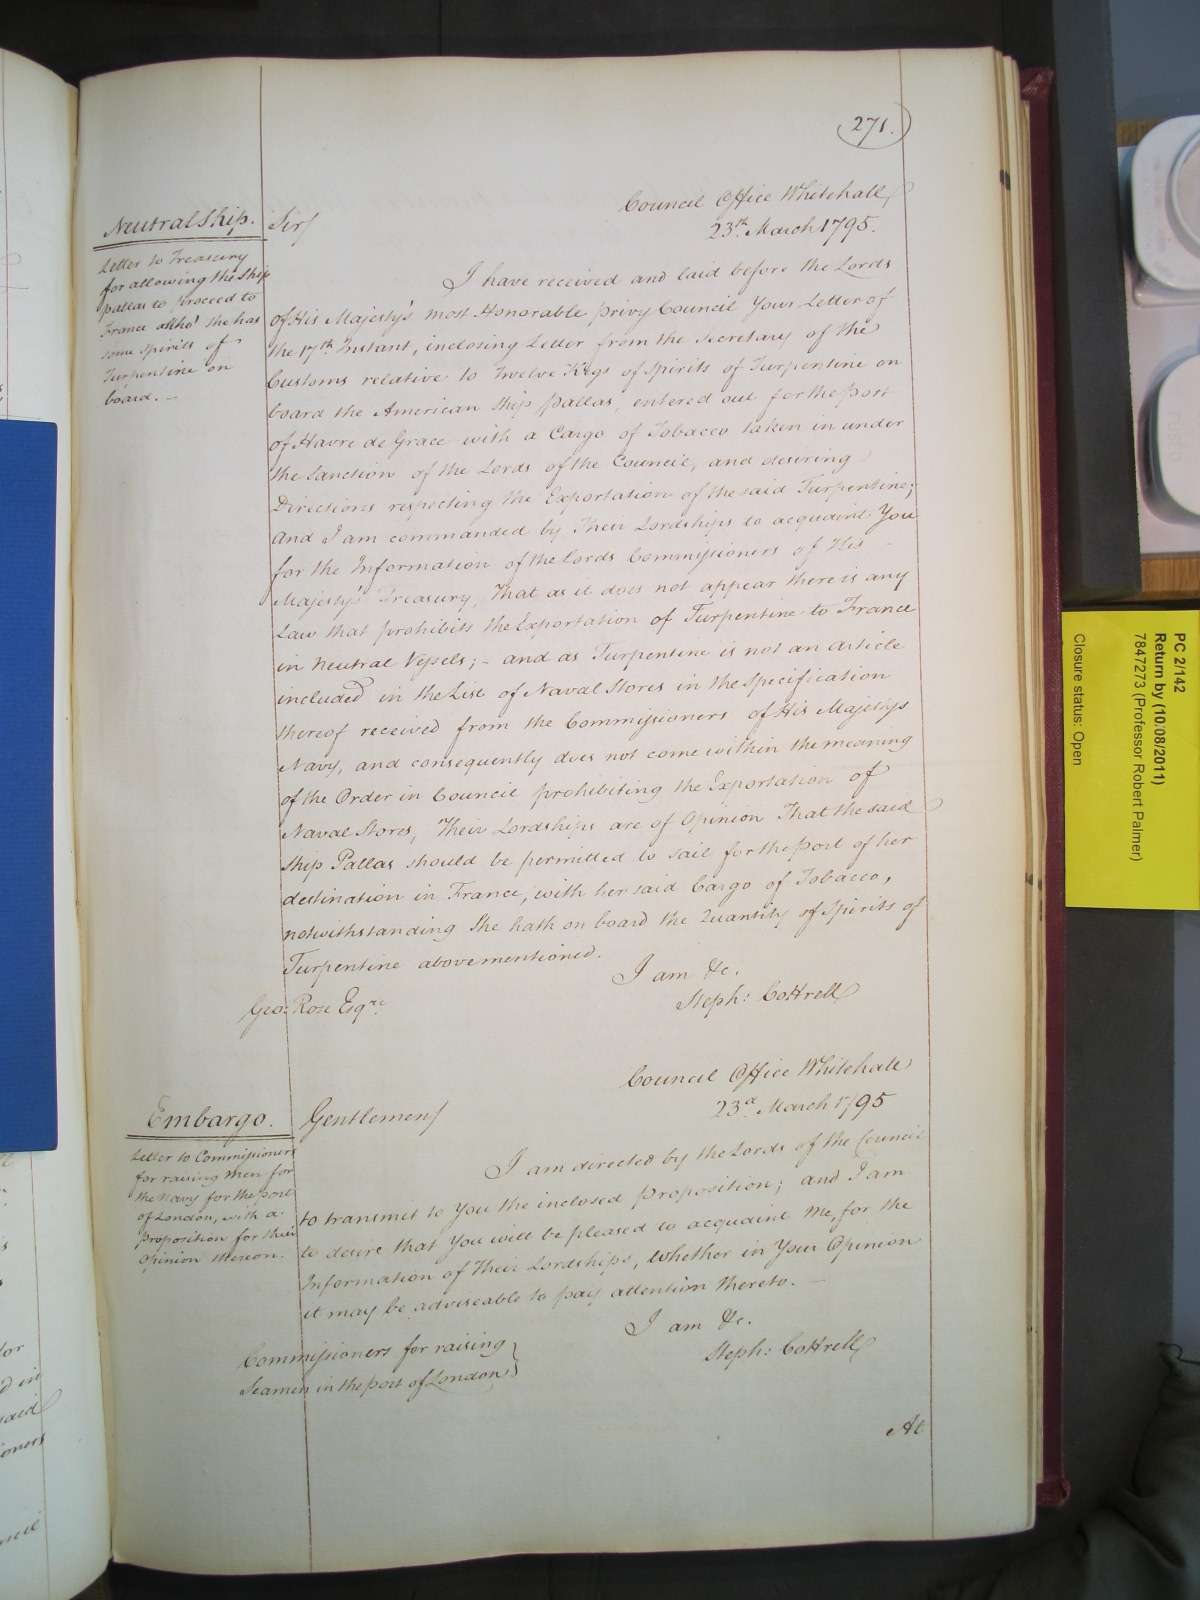 271.
Council Office Whitehall
23rd. March 1795.
Neutral Ship.
Letter to Treasury
for allowing the Ship
pallas to proceed to
France altho' she has
some Spirits of
Turpentine on
board. —
Sir/
I have received and laid before the Lords
of His Majesty's most Honorable privy Council Your Letter of
the 17th Instant, inclosing Letter from the Secretary of the
Customs relative to Twelve Kegs of Spirits of Turpentine on
board the American Ship pallas, entered out for the port
of Havre de Grace with a Cargo of Tobacco taken in under
the Sanction of the Lords of the Council, and desiring
Directions respecting the Exportation of the said Turpentine;
and I am commanded by Their Lordships to acquaint You
for the Information of the Lords Commissioners of His
Majesty's Treasury, That as it does not appear there is any
Law that prohibits the Exportation of Turpentine to France
in Neutral Vessels; - and as Turpentine is not an Article
included in the List of Naval Stores in the Specification
thereof received from the Commissioners of His Majesty's
Navy, and consequently does not come within the meaning
of the Order in Council prohibiting the Exportation of
Naval Stores, Their Lordships are of Opinion That the said
Ship Pallas should be permitted to sail for the Port of her
destination in France, with her said Cargo of Tobacco,
notwithstanding She hath on board the Quantity of Spirits of
Turpentine abovementioned.
I am &c.
Steph: Cottrell
Geo: Rose Esqre.
Council Office Whitehall
23d March 1795
Embargo.
Letter to Commissioners
for raising Men for
the Navy for the port
of London, with a
proposition for their
Opinion thereon.
Gentlemen/
I am directed by the Lords of the Council
to transmit to You the inclosed Proposition; and I am
to desire that You will be pleased to acquaint Me, for the
Information of Their Lordships, whether in Your Opinion
it may be adviseable to pay attention thereto. —
I am &c.
Steph: Cottrell
Commissioners for raising
Seamen in the port of London}
At
PC 2/142
Return by (10/08/2011)
7847273 (Professor Robert Palmer)
Closure status: Open